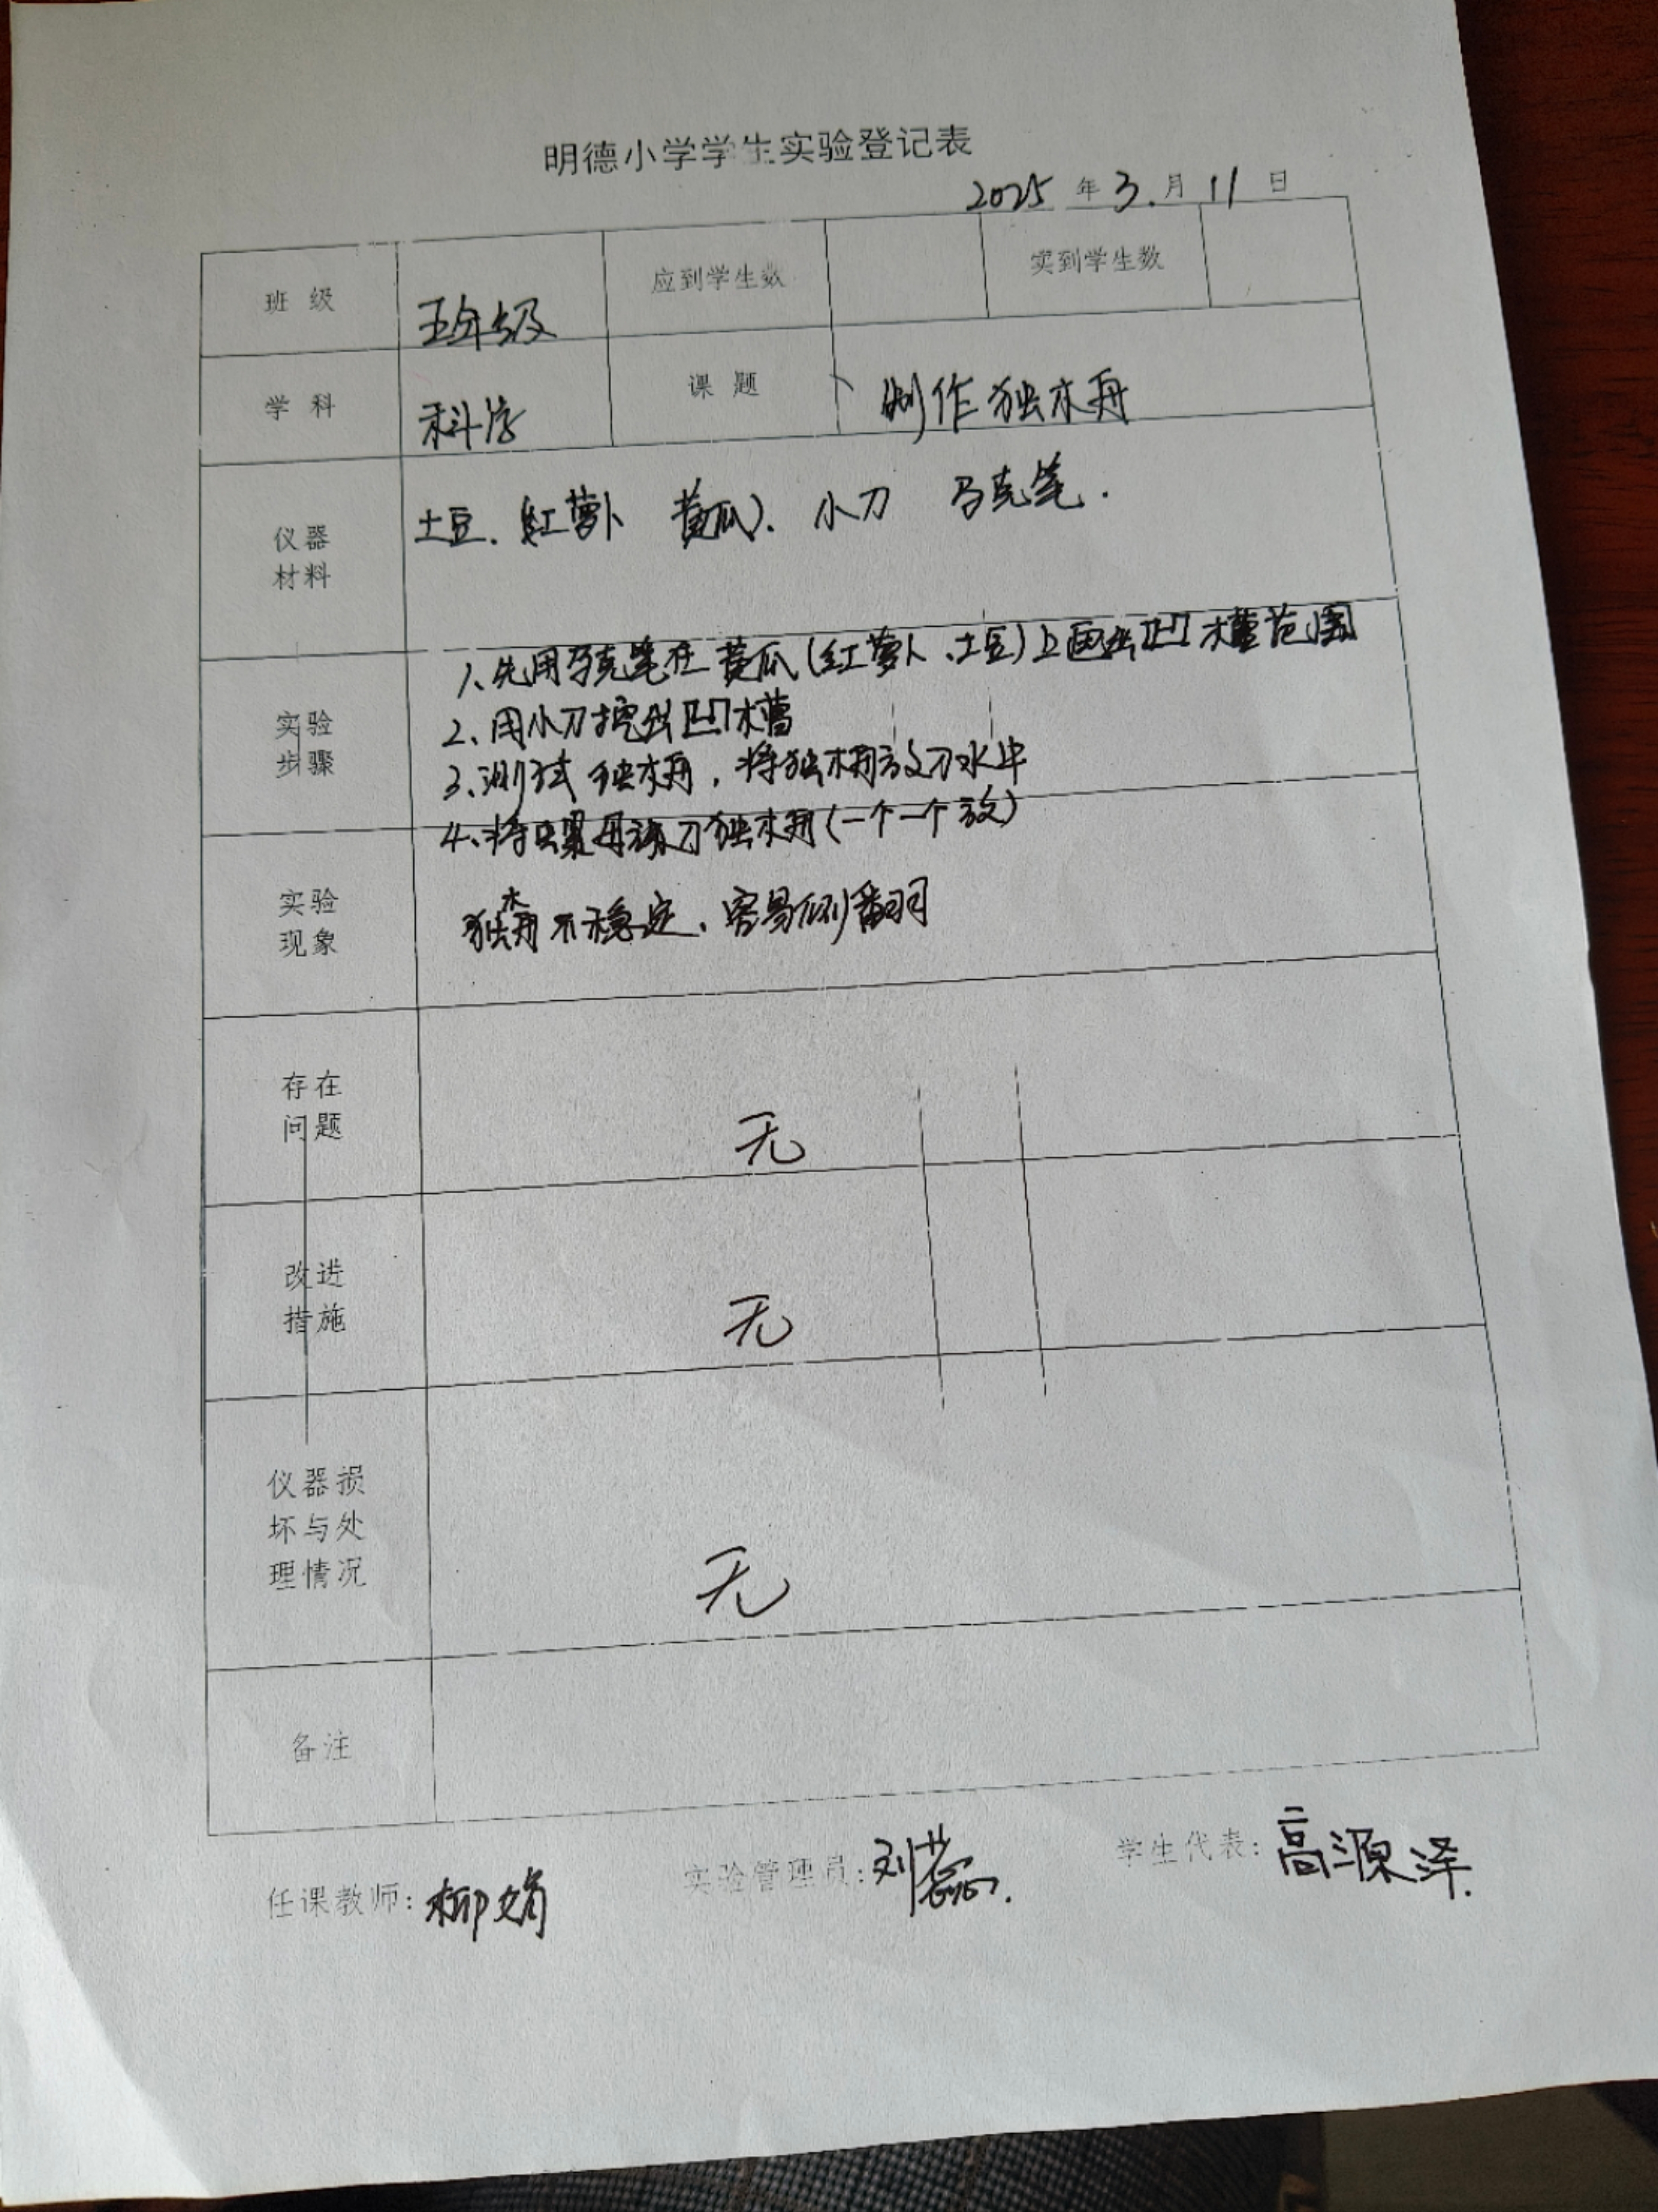 明德小学学生实验登记表
2025年3.月11日
班级 五年级 应到学生数 实到学生数
学科 科学 课题 制作独木舟
仪器
材料
土豆.红萝卜 黄瓜).小刀 马克笔.
实验
步骤
1、先用马克笔在黄瓜(红萝卜、土豆)上画出凹槽范围
2、用小刀挖出凹槽
3、测试独木舟,将独木舟放到水中
4、将螺母放到独木舟(一个一个放)
实验
现象
独木舟不稳定、容易侧翻
存在
问题
无
改进
措施
无
仪器损
坏与处
理情况
无
备注
任课教师:柳娟 实验管理员:刘蕊. 学生代表:高源泽.